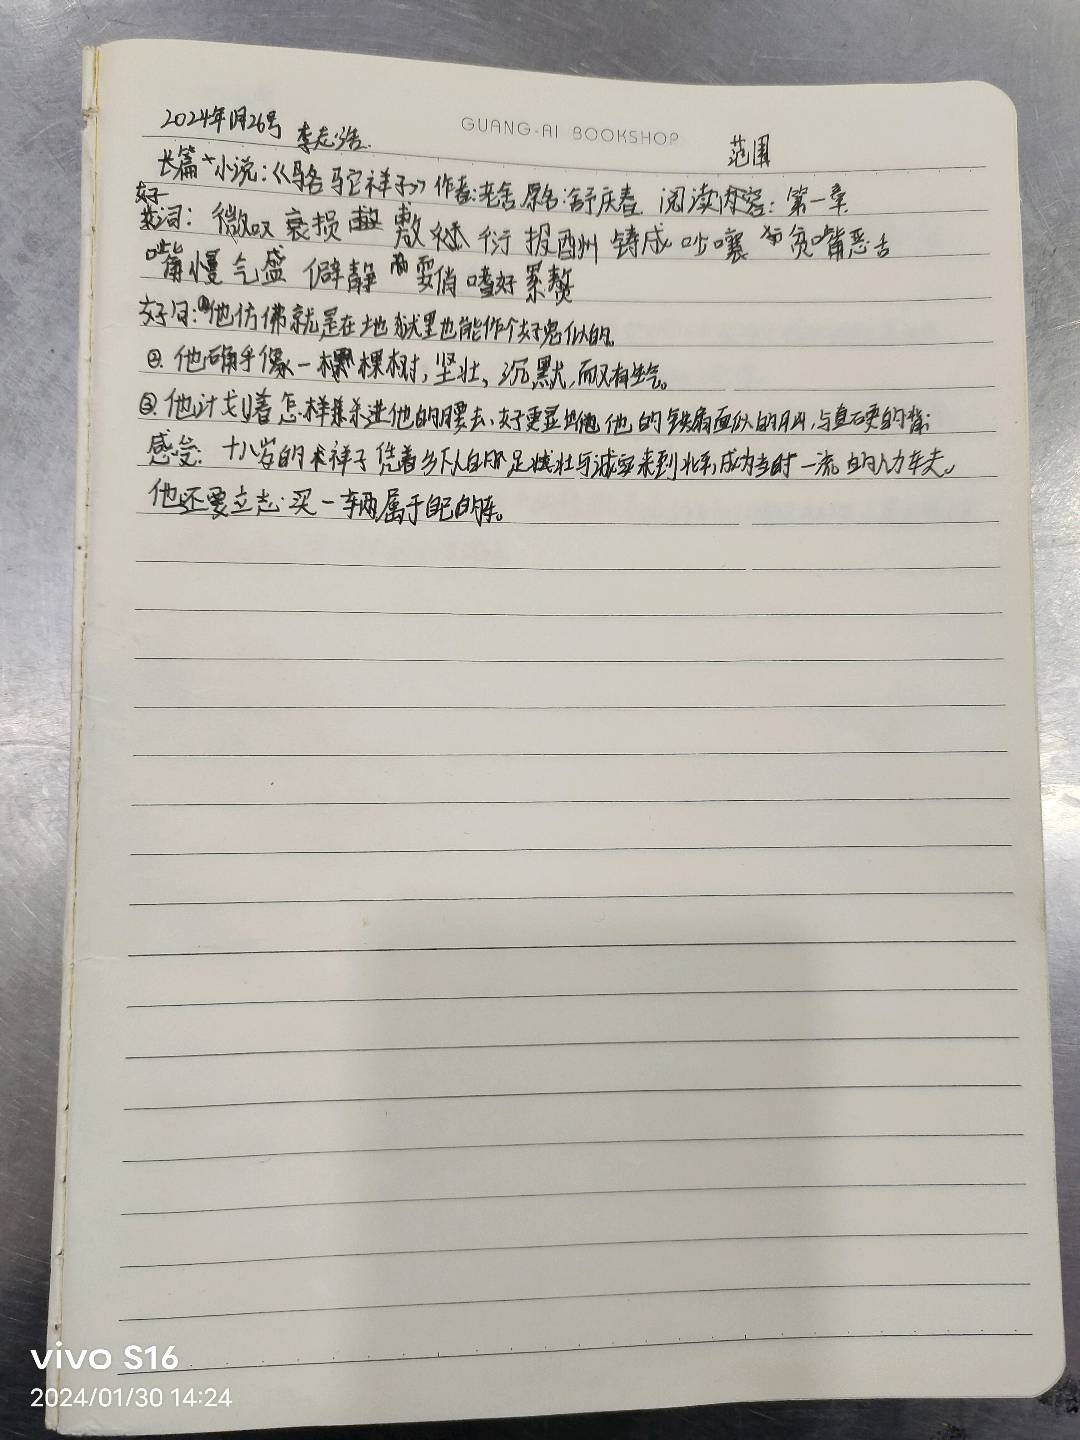 GUANG-AI BOOKSHOP
2024年1月26号 李志浩. 范围
长篇小说:《骆驼祥子》作者:老舍 原名:舒庆春 阅读内容:第一章
好词: 微叹 衰损 敷衍 报酬 铸成 吵嚷 贫嘴恶舌
嘴慢 气盛 僻静 耍俏 嗜好
好句:①他仿佛就是在地狱里也能作个好鬼似的。
②.他确乎像一棵树,坚壮,沉默,而又有生气。
③.他计划着怎样杀进他的腰去,好更显出他的铁扇面似的胸,与直硬的背;
感受: 十八岁的祥子凭着乡下人的足壮与诚实来到北平,成为当时一流的人力车夫。
他还要立志:买一辆属于自己的车。
vivo S16
2024/01/30 14:24